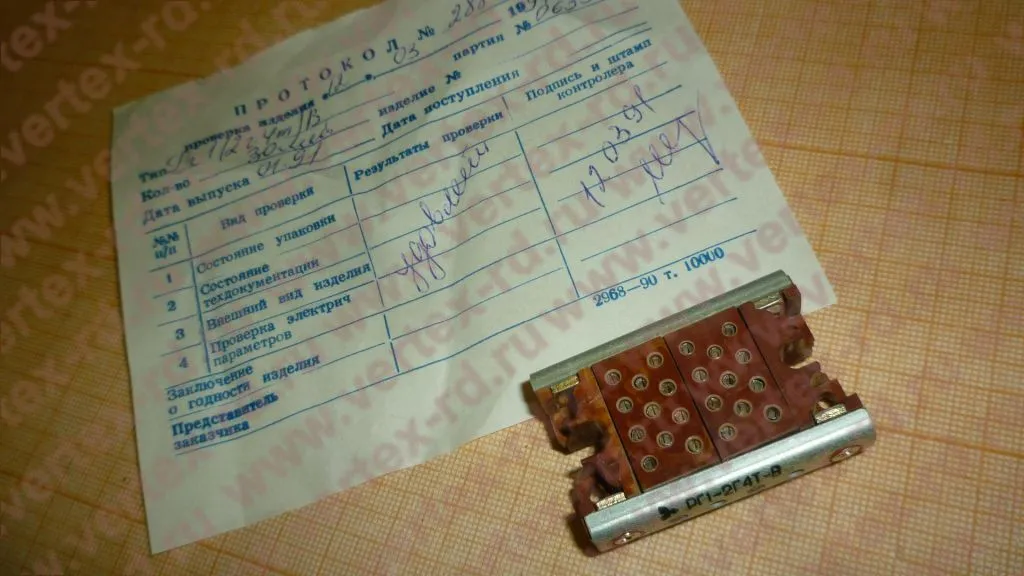 ПРОТОКОЛ №
проверка изделия
изделие № партия №
Тип
Кол-во Дата поступления
Дата выпуска 01.91
№№ п/п Вид проверки Результаты проверки Подпись и штамп контролера
1 Состояние упаковки
2 Состояние техдокументации
3 Внешний вид изделия
4 Проверка электрич параметров
12 03 91
Заключение
о годности изделия
Представитель
заказчика
2968—90 т. 10000
РГ1-2Г4Т-В
www.vertex-rd.ru